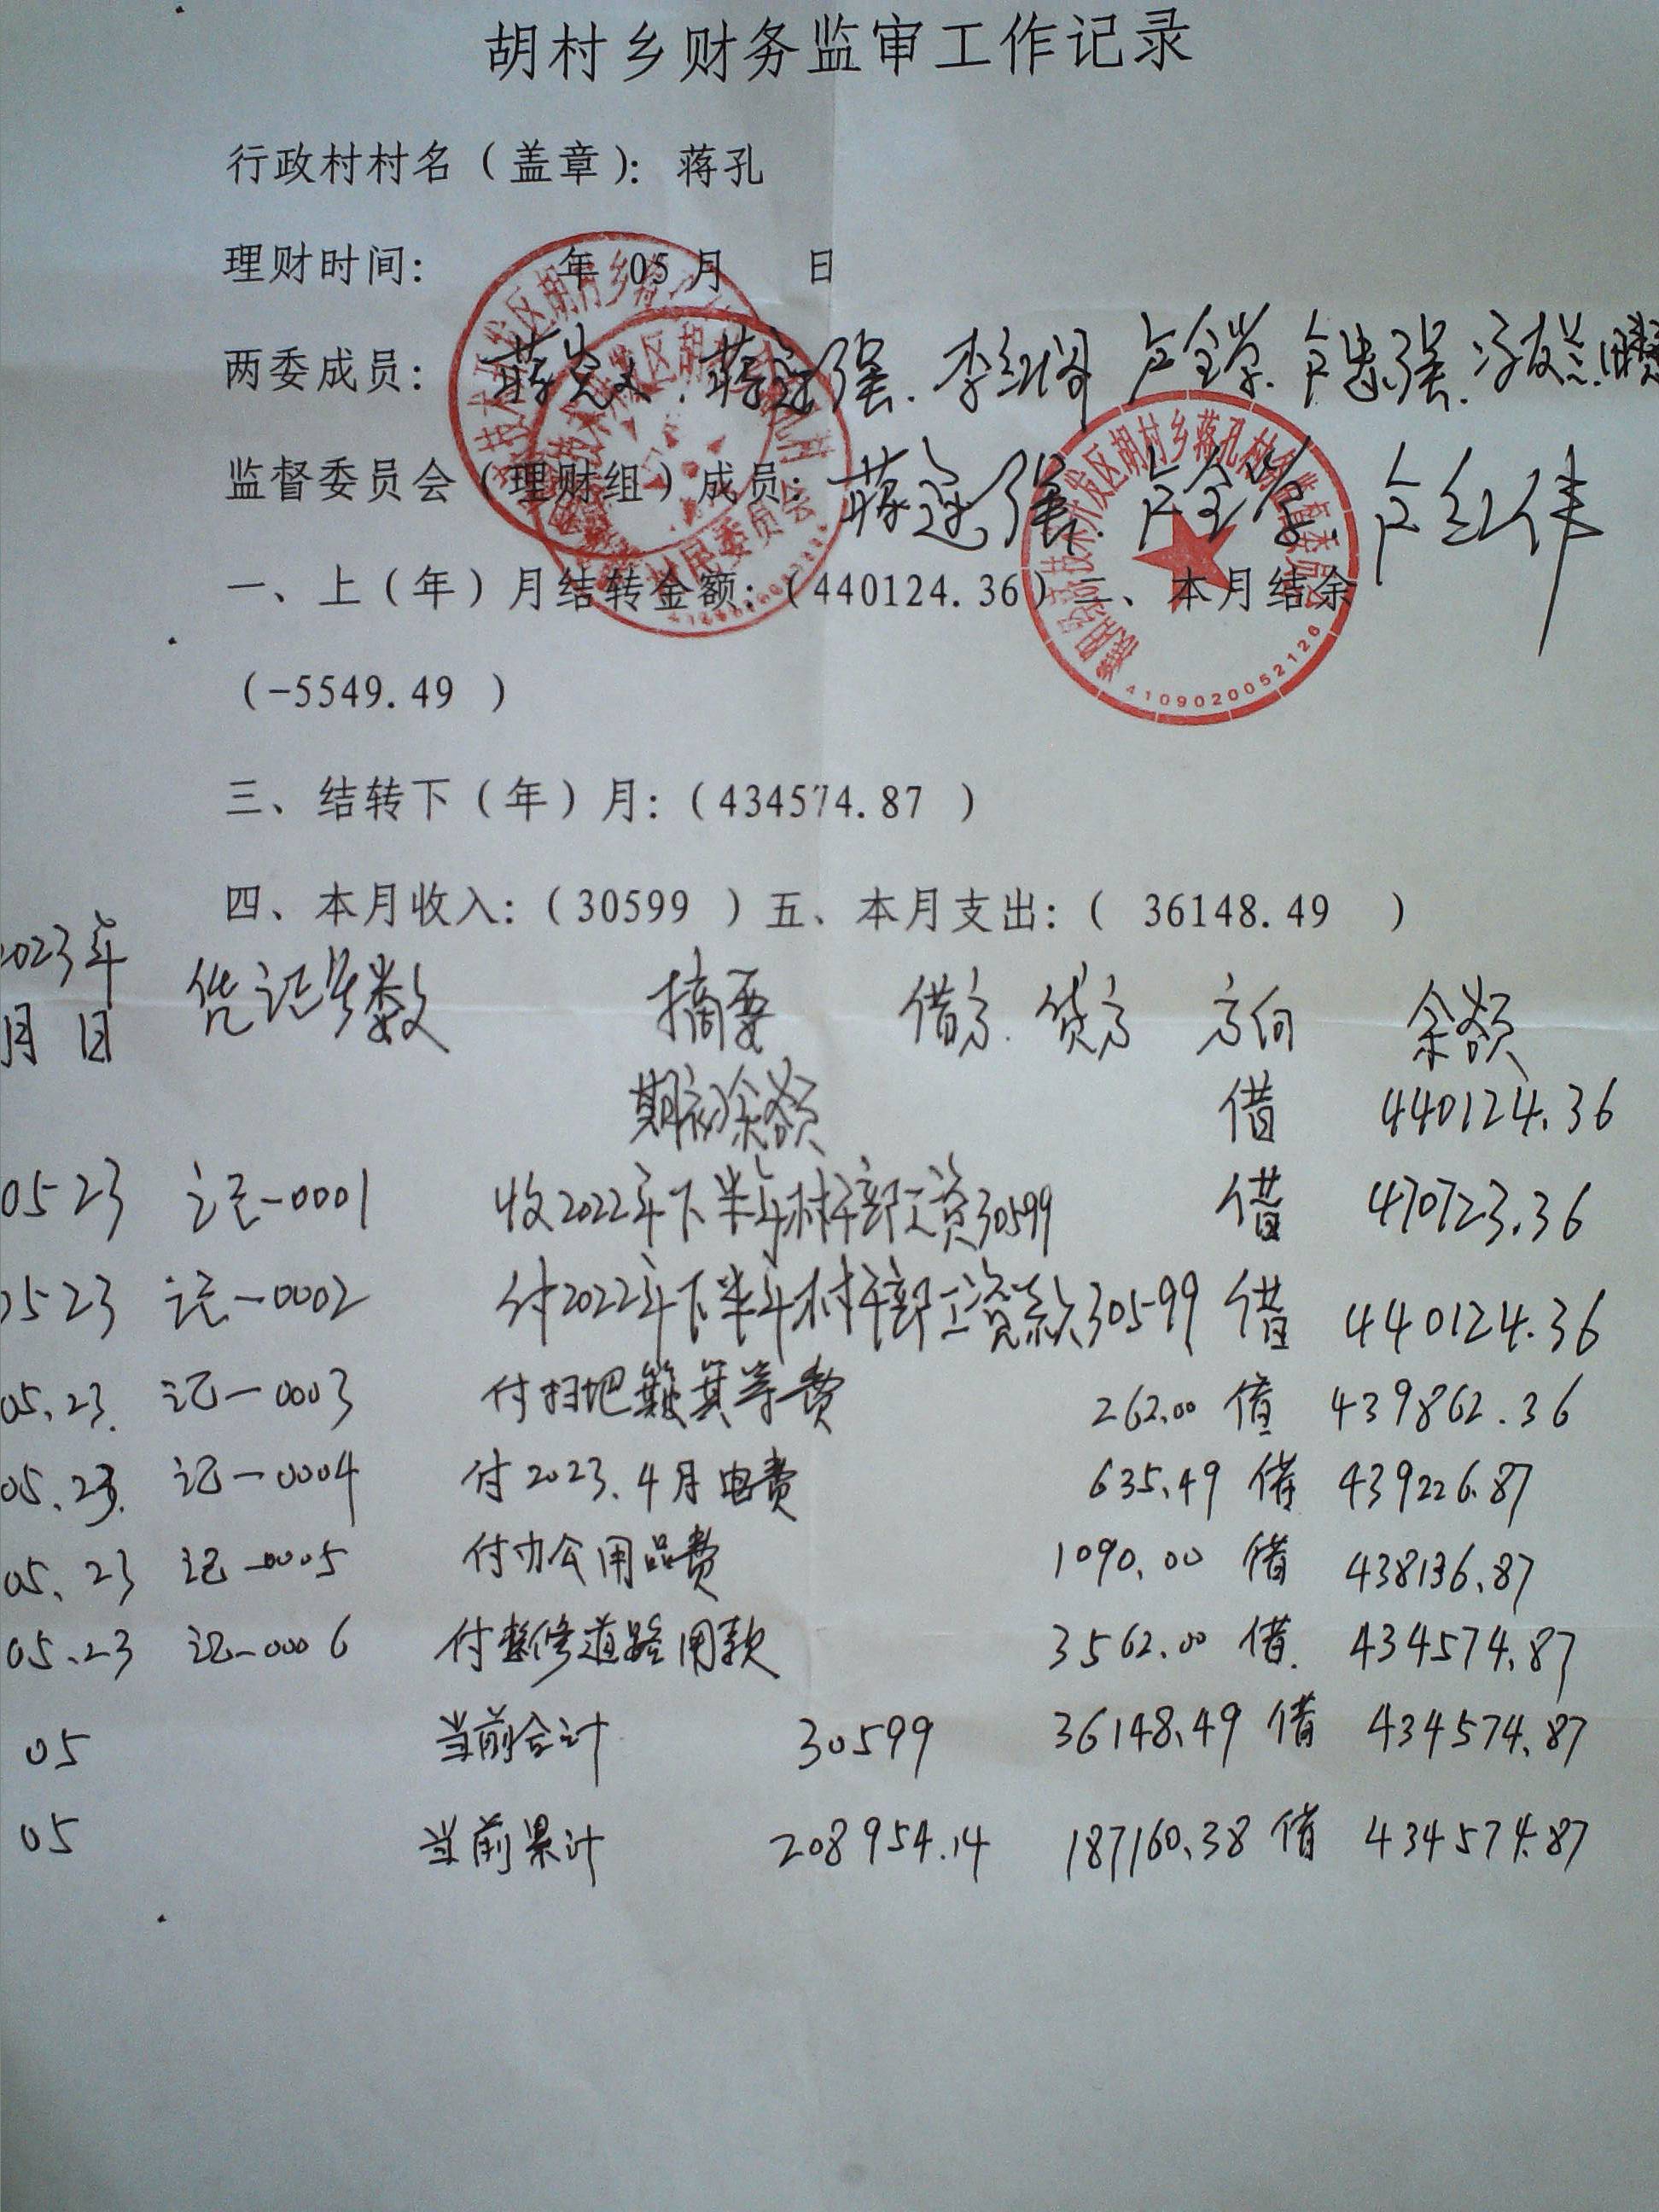 胡村乡财务监审工作记录
行政村村名（盖章）：蒋孔
理财时间： 年 05 月 日
两委成员： 蒋 蒋连强. 李红阁 卢全学. 卢忠强.
监督委员会（理财组）成员： 蒋连强. 卢全学. 卢红伟
一、上（年）月结转金额：（440124.36）二、本月结余
（-5549.49 ）
三、结转下（年）月：（434574.87 ）
四、本月收入：（30599 ）五、本月支出：（ 36148.49 ）
2023年
月 日 凭记号数 摘要 借方. 贷方 方向 余额
期初余额 借 440124.36
05 23 记-0001 收2022年下半年村干部工资30599 借 470723.36
0523 记-0002 付2022年下半年村干部工资款30599 借 440124.36
05.23. 记-0003 付扫把簸箕等费 262.00 借 439862.36
05.23. 记-0004 付2023.4月电费 635.49 借 439226.87
05.23 记-0005 付办公用品费 1090.00 借 438136.87
05.23 记-0006 付整修道路用款 3562.00 借. 434574.87
05 当前合计 30599 36148.49 借 434574.87
05 当前累计 208954.14 187160.38 借 434574.87
村民委员会
开发区胡村乡蒋孔村务监督委员会
4109020052126